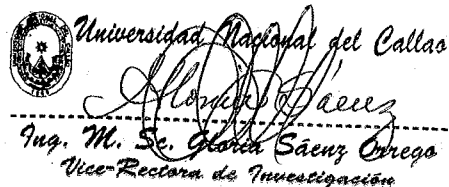 Universidad Nacional del Callao
Gloria Sáenz
Ing. M. Sc. Gloria Sáenz Orrego
Vice-Rectora de Investigación